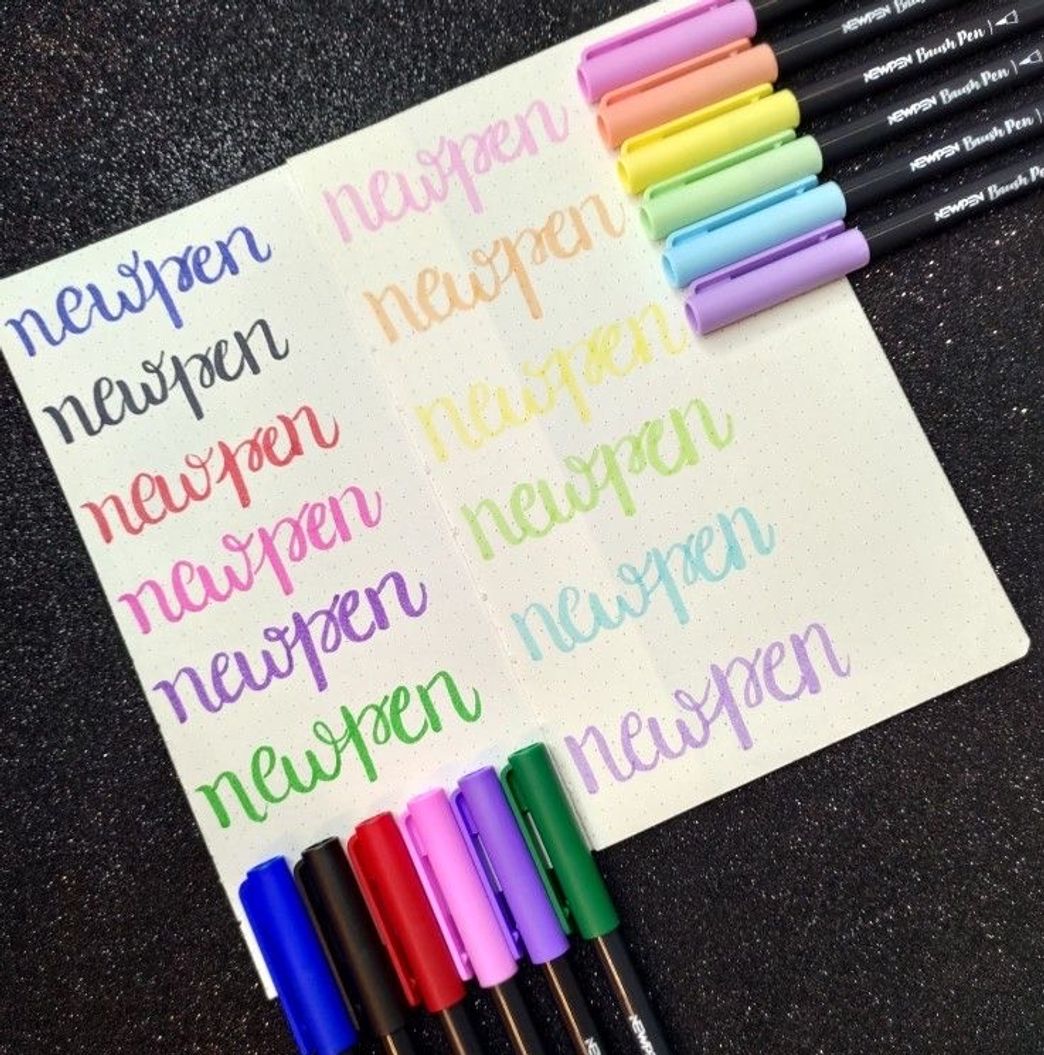 newpen
newpen
newpen
newpen
newpen
newpen
newpen
newpen
newpen
newpen
newpen
newpen
NEWPEN Bru
NEWPEN Brush Pen
NEWPEN Brush Pen
NEWPEN Brush Pen
NEWPEN Brush Pe
NEWPEN